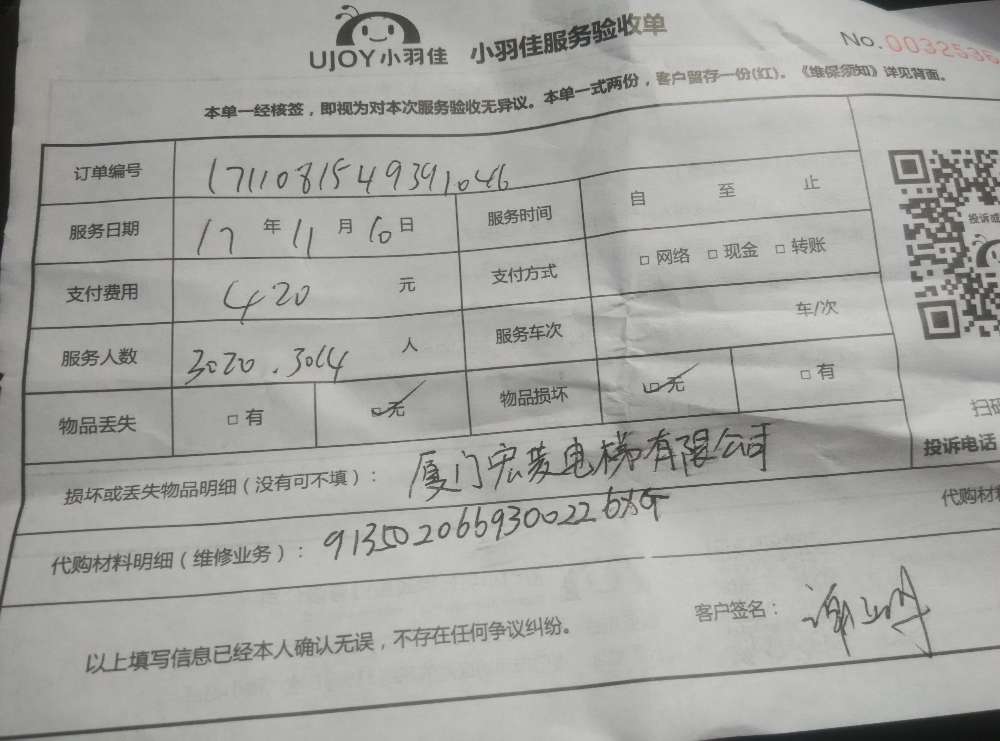 UJOY小羽佳 小羽佳服务验收单
No. 0032536
本单一经核签，即视为对本次服务验收无异议。本单一式两份，客户留存一份(红)。《维保须知》详见背面。
订单编号 1711081549391046
服务日期 17 年 11 月 10 日 服务时间 自 至 止
支付费用 420 元 支付方式 □ 网络 □ 现金 □ 转账
服务人数 3020.3014 人 服务车次 车/次
物品丢失 □ 有 ☑ 无 物品损坏 ☑ 无 □ 有
投诉或
扫码
投诉电话
损坏或丢失物品明细（没有可不填）： 厦门宏菱电梯有限公司
代购材料明细（维修业务）： 9135020669300226XG
代购材料
以上填写信息已经本人确认无误，不存在任何争议纠纷。 客户签名：